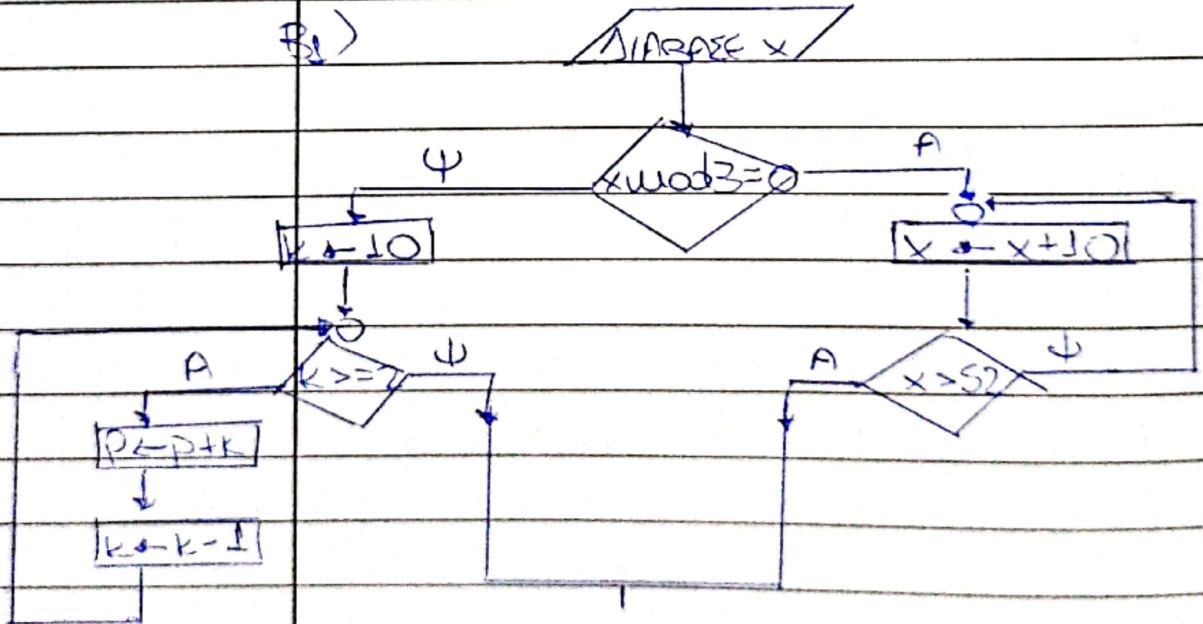 B1)
ΔΙΑΒΑΣΕ x
x mod 3 = 0
Ψ
A
k ← 10
x ← x + 10
A
Ψ
A
x > 52
Ψ
p ← p + k
k ← k - 1